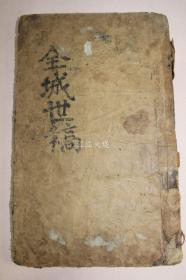 全城世稿